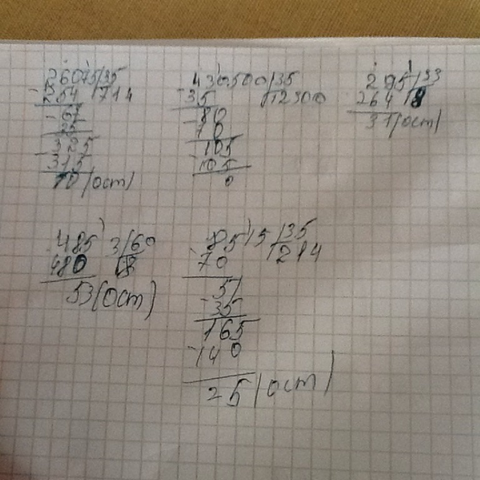 26075/35
-254 1714
-61
35
-325
315
10 (ост)
430500/35
-35 12300
-80
70
-105
105
0
295/33
264 8
31 (ост)
4853/60
480 8
53 (ост)
8515/35
-70 214
-51
-35
165
-140
25 (ост)